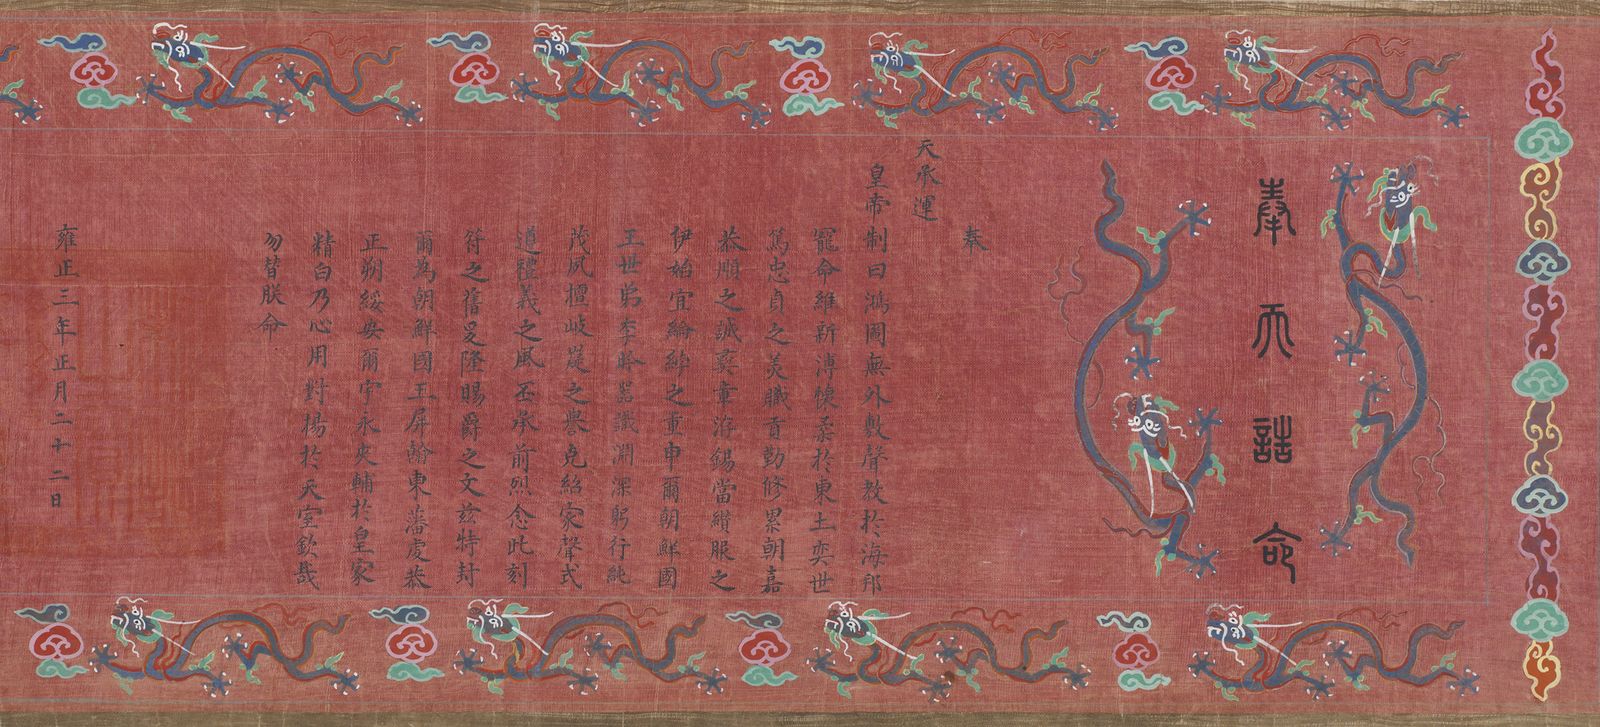 奉天誥命
奉
天承運
皇帝制曰鴻圖無外敷聲教於海邦
寵命維新溥懷柔於東土奕世
篤忠貞之美職貢勤修累朝嘉
恭順之誠彛章洊錫當纘服之
伊始宜綸綍之重申爾朝鮮國
王世弟李昑器識淵深躬行純
茂夙擅岐嶷之譽克紹家聲式
遵禮義之風丕承前烈念此刻
符之舊爰隆賜爵之文茲特封
爾為朝鮮國王屏翰東藩虔恭
正朔綏安爾宇永夾輔於皇家
精白乃心用對揚於天室欽哉
勿替朕命
雍正三年正月二十二日